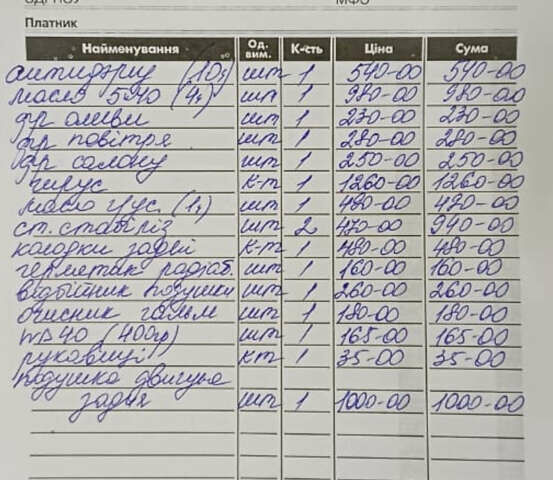 Платник
Найменування Од. вим. К-сть Ціна Сума
антифриз (10л) шт 1 540-00 540-00
масло 5W40 (4л) шт 1 980-00 980-00
фр оливи шт 1 230-00 230-00
фр повітря шт 1 280-00 280-00
фр салону шт 1 250-00 250-00
к-т 1 1260-00 1260-00
масло гус. (1л) шт 1 480-00 480-00
ст. стабіліз шт 2 470-00 940-00
колодки задні к-т 1 480-00 480-00
герметик радіат. шт 1 160-00 160-00
відбійник подушки шт 1 260-00 260-00
очисник гальм шт 1 180-00 180-00
WD40 (400гр) шт 1 165-00 165-00
рукавиці кт 1 35-00 35-00
подушка двигуна
задня шт 1 1000-00 1000-00